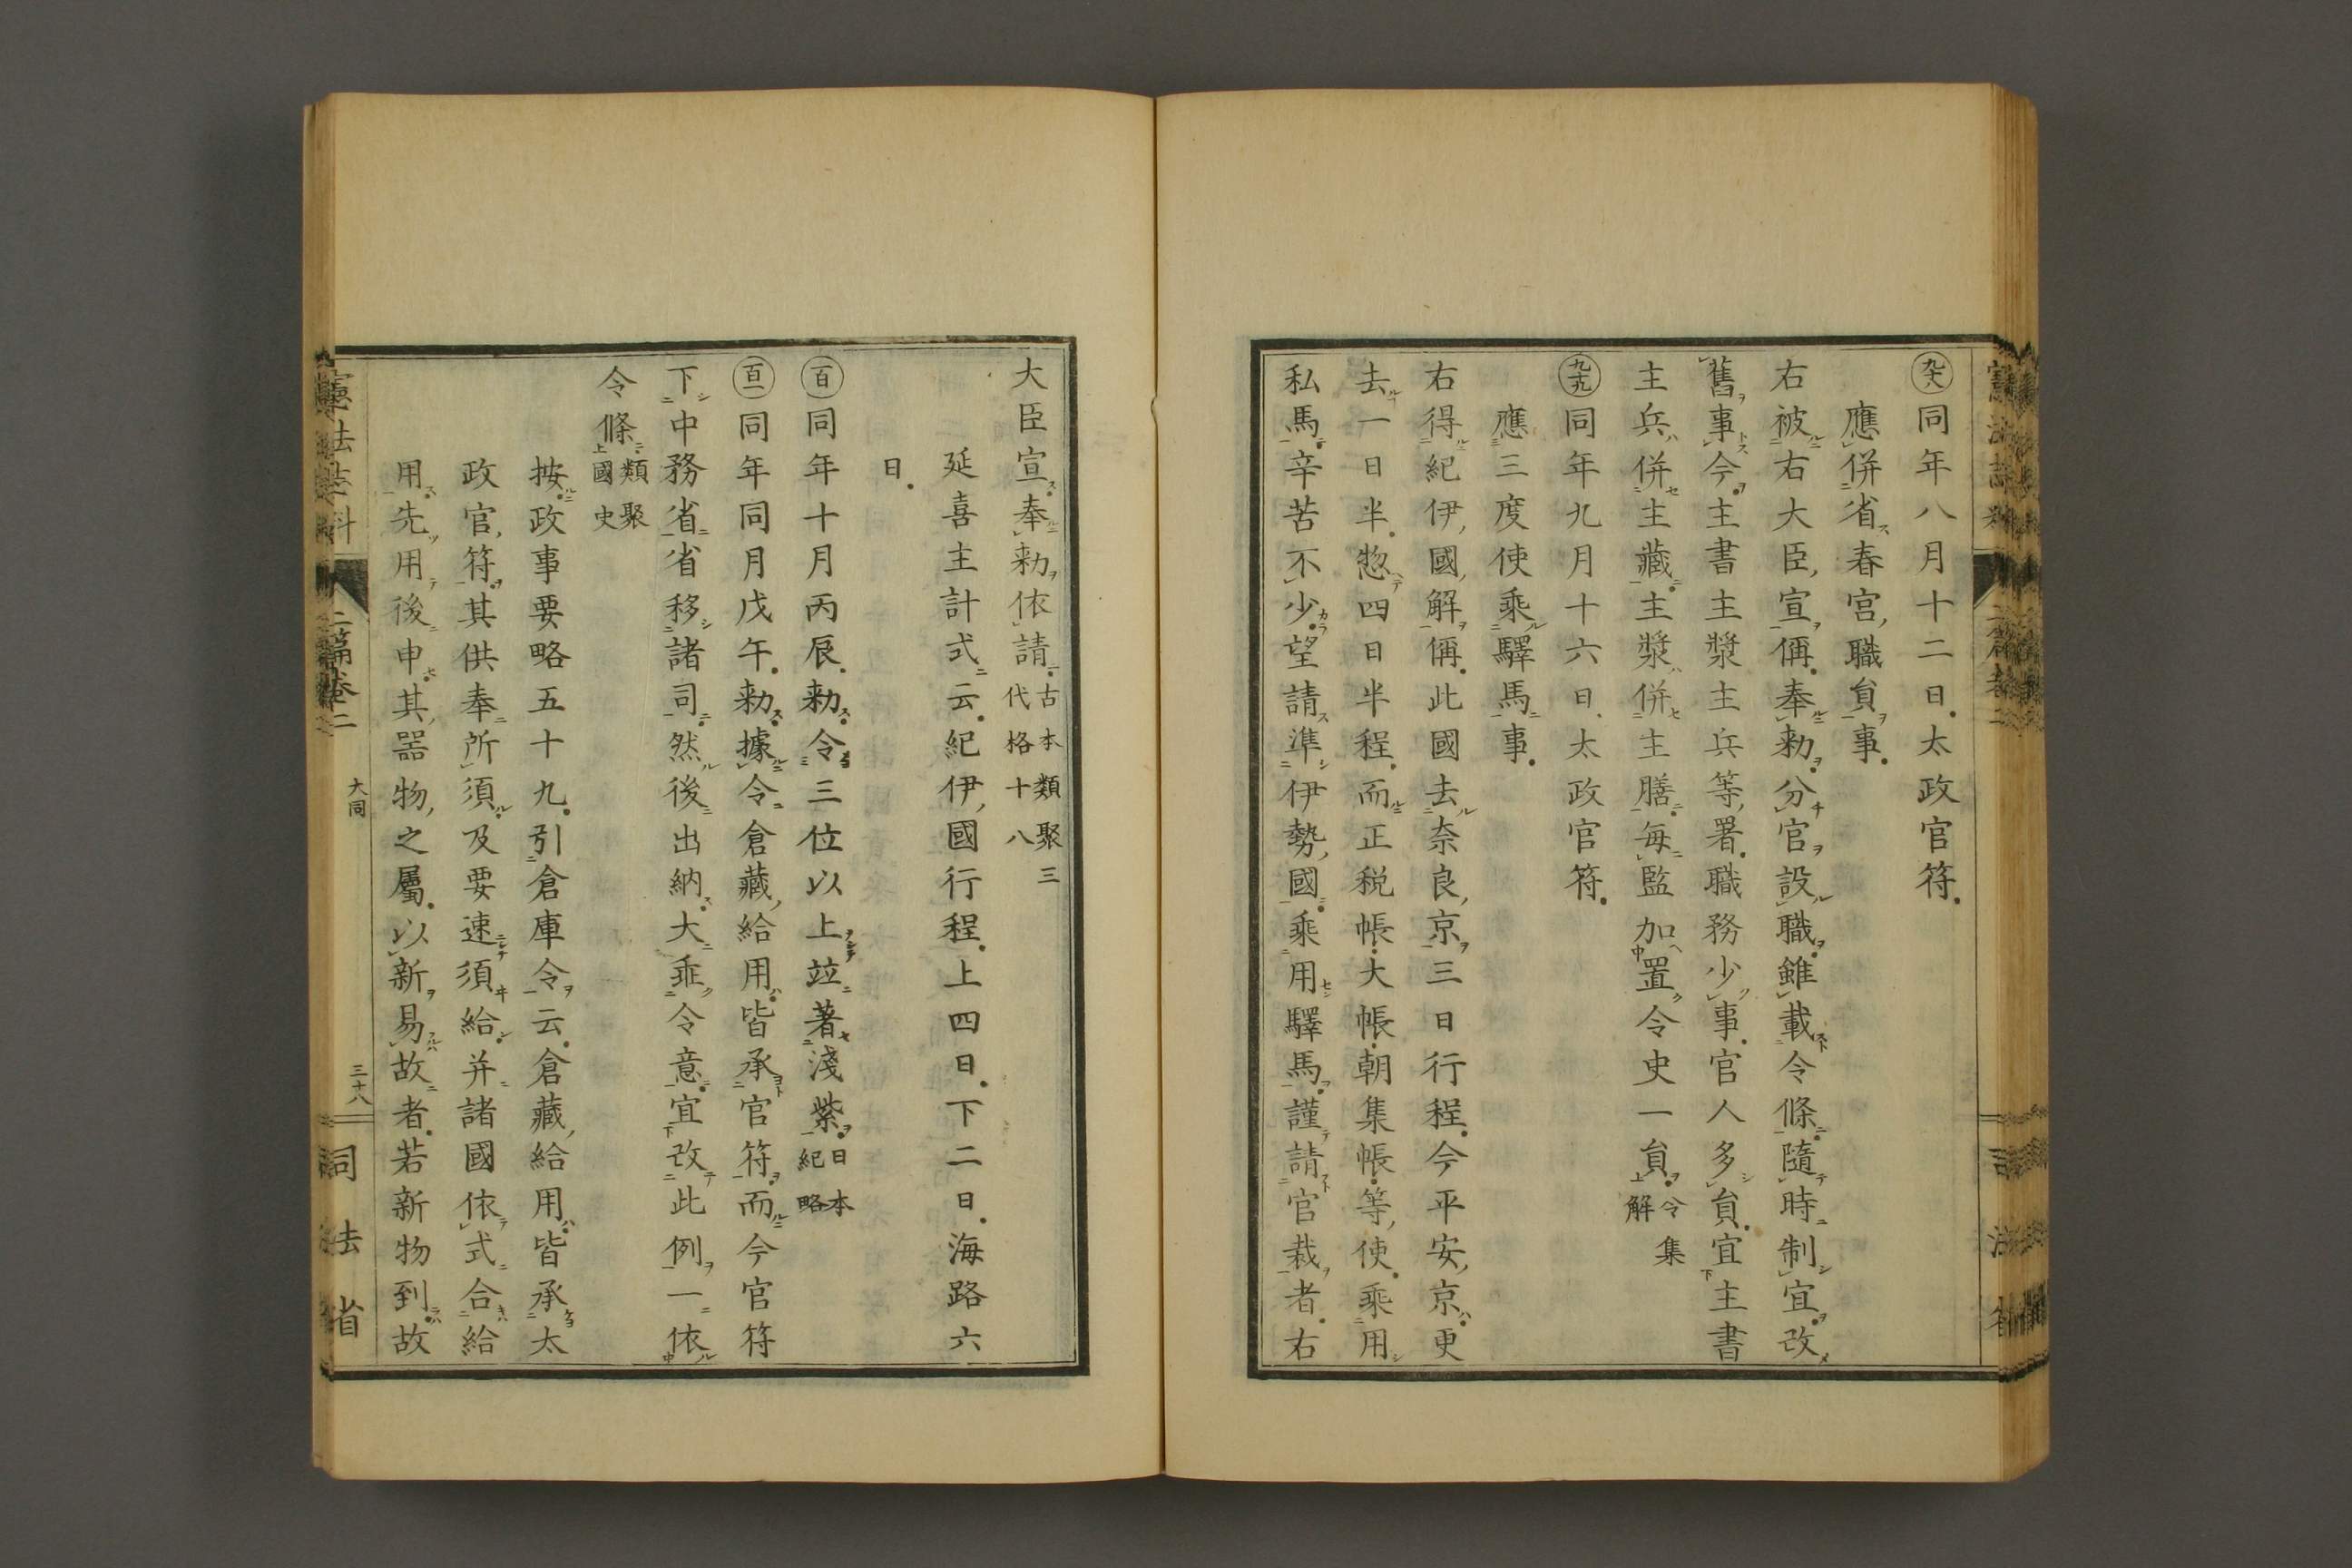 九十八 同年八月十二日太政官符
應併省春宮職貟事
右被右大臣宣偁奉勅分官設職雖載令條隨時制宜改
舊事今主書主漿主兵等署職務少事官人多貟宜主書
主兵併主藏主漿併主膳每監加置令史一貟 令集解
九十九 同年九月十六日太政官符
應三度使乘驛馬事
右得紀伊國解偁此國去奈良京三日行程今平安京更
去一日半惣四日半程而正税帳大帳朝集帳等使乘用
私馬辛苦不少望請準伊勢國乘用驛馬謹請官裁者右
大臣宣奉勅依請 古本類聚三代格十八
延喜主計式云紀伊國行程上四日下二日海路六
日
百 同年十月丙辰勅令三位以上竝著淺紫 日本紀略
百一 同年同月戊午勅據令倉藏給用皆承官符而今官符
下中務省省移諸司然後出納大乖令意宜改此例一依
令條 類聚國史
按政事要略五十九引倉庫令云倉藏給用皆承太
政官符其供奉所須及要速須給并諸國依式合給
用先用後申其器物之屬以新易故者若新物到故
憲法志料
二篇卷二
大同
三十八
司法省